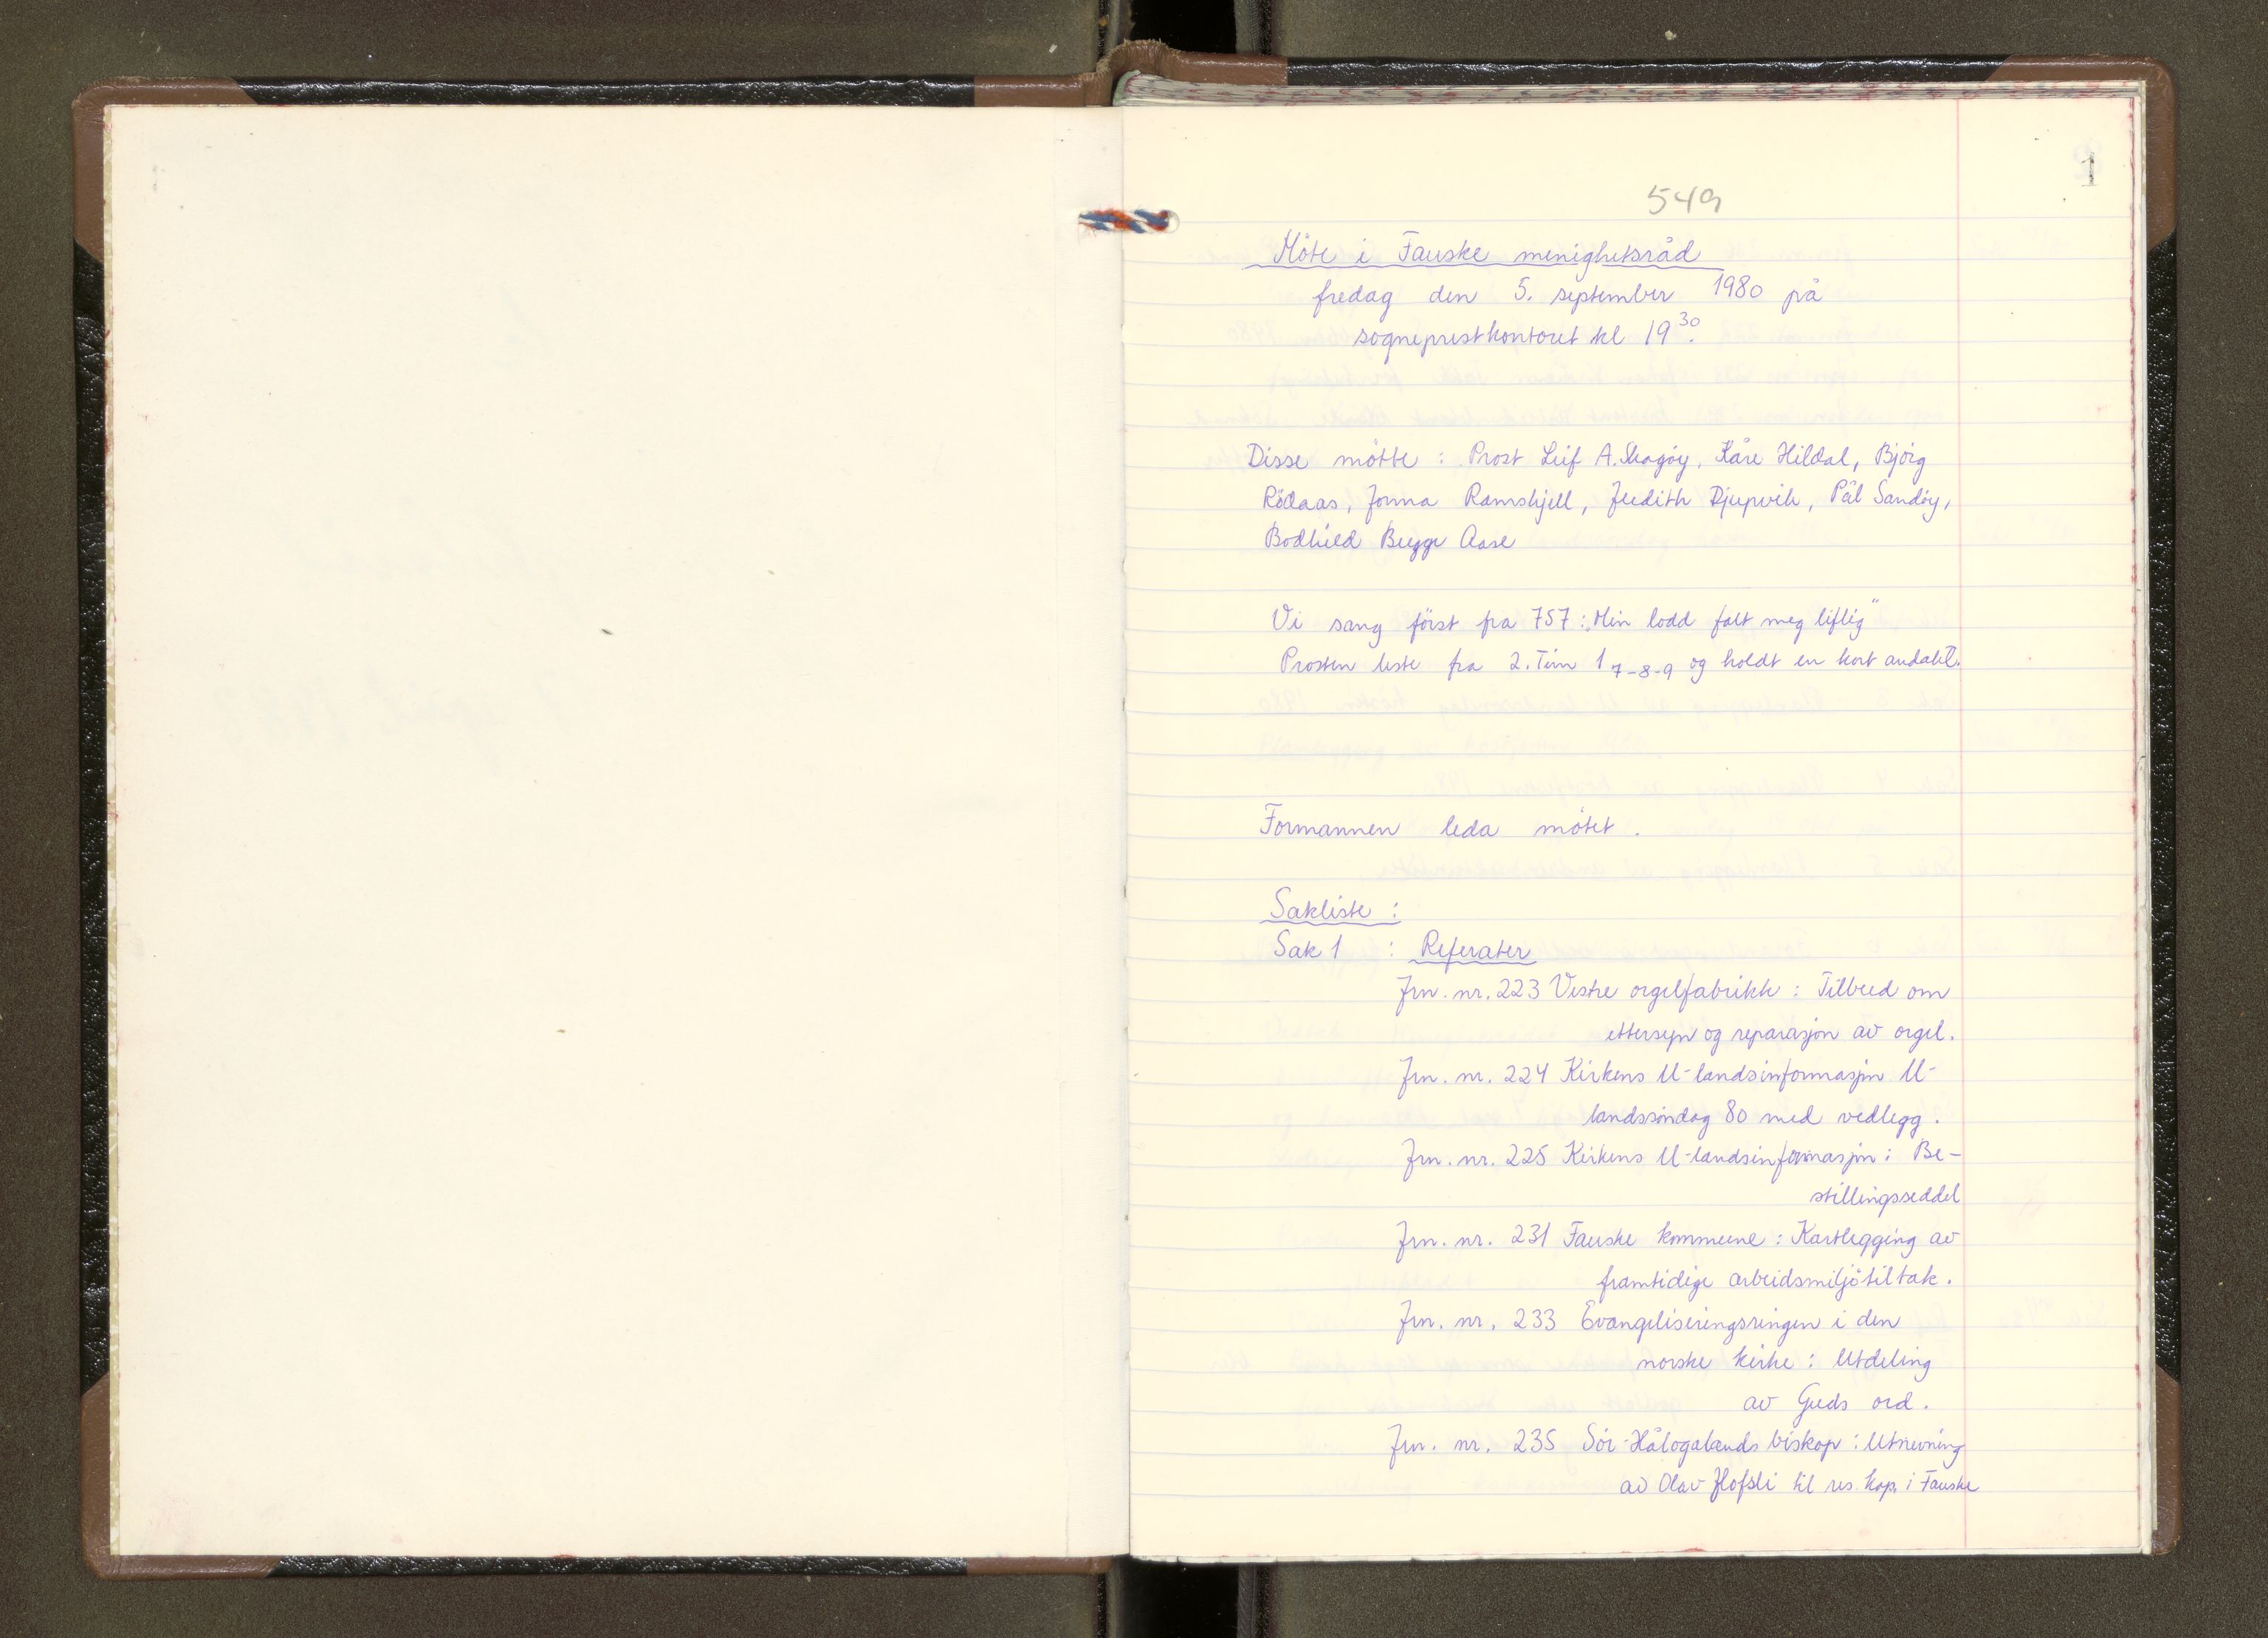 1
549
Möte i Fauske menighetsråd
fredag den 5. september 1980 på
sogneprestkontoret kl 19³⁰.
Disse mötte : Prost Leif A. Skagöy, Kåre Hildal, Björg
Rödaas, Jonna Ramskjell, Judith Djupvik, Pål Sandöy,
Bodhild Bugge Aase
Vi sang först fra 757: „Min lodd falt meg liflig"
Prosten leste fra 2. Tim 1 7-8-9 og holdt en kort andakt.
Formannen leda mötet.
Sakliste :
Sak 1 : Referater
Jrn. nr. 223 Vestre orgelfabrikk : Tilbud om
ettersyn og reparasjon av orgel.
Jrn. nr. 224 Kirkens U-landsinformasjon U-
landssöndag 80 med vedlegg.
Jrn. nr. 225 Kirkens U-landsinformasjon : Be-
stillingsseddel
Jrn. nr. 231 Fauske kommune : Kartlegging av
framtidige arbeidsmiljötiltak.
Jrn. nr. 233 Evangeliseringsringen i den
norske kirke : Utdeling
av Guds ord.
Jrn. nr. 235 Sör-Hålogalands biskop : Utnevning
av Olav Hofsli til res. kap. i Fauske